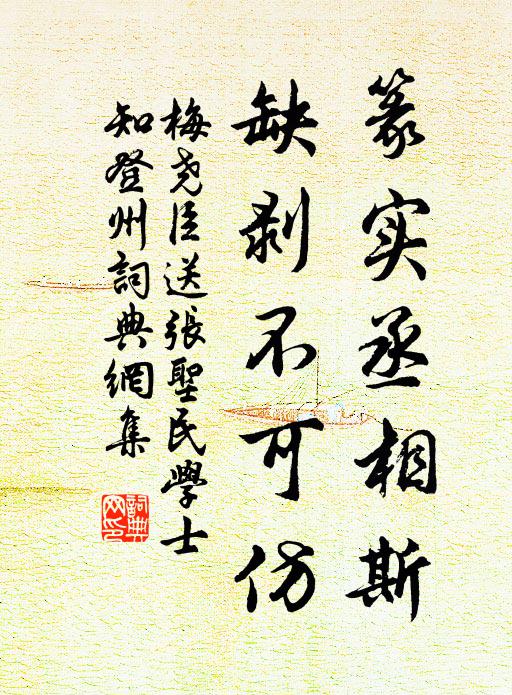 篆实丞相斯
缺剥不可仿
梅尧臣送張聖民學士
知登州詞典網集
詞典网印